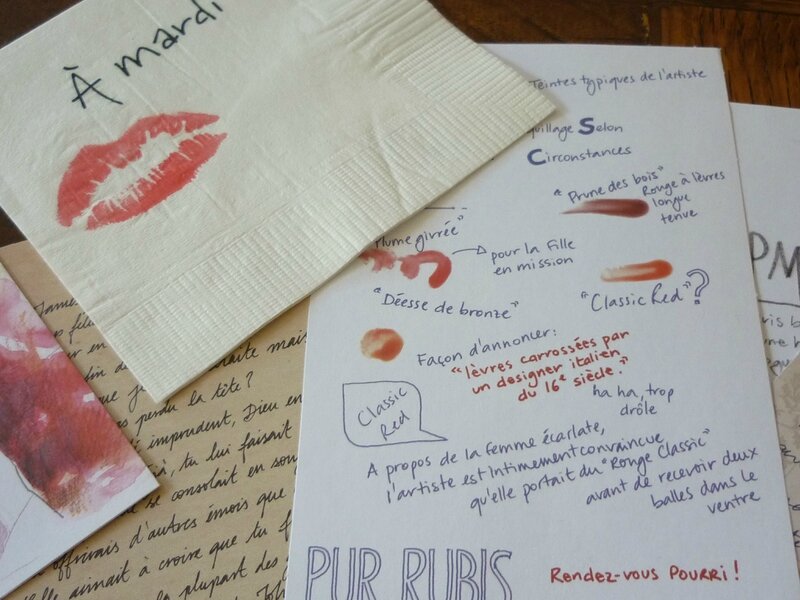 À mardi
Teintes typiques de l'artiste
Selon
Circonstances
"Prune des bois"
Rouge à lèvres
longue
tenue
givrée"
pour la Fille
en mission
"Déesse de bronze"
"Classic Red"?
Façon d'annoncer:
"lèvres carrossées par
un designer italien
du 16e siècle."
ha ha, trop
drôle
Classic
Red
A propos de la femme écarlate,
l'artiste est intimement convaincue
qu'elle portait du "Rouge Classic"
avant de recevoir deux
balles dans le
ventre
PUR RUBIS
Rendez-vous POURRI!
mais
perdu la tête?
imprudent, Dieu en
tu lui faisait
se consolait en
offrirais d'autres émois que
aimait à croire que tu
plupart des
PM